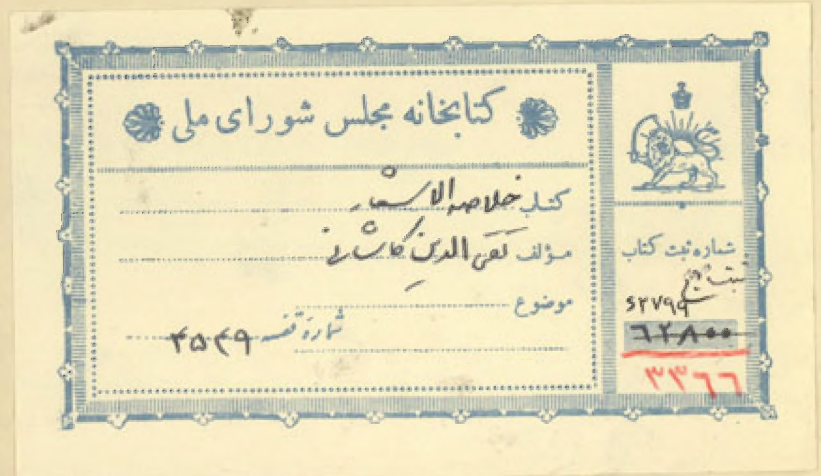 کتابخانه مجلس شورای ملی
کتاب خلاصه الاشعار
مؤلف تقی الدین کاشانی
موضوع
شمارهٔ قفسه ۴۵۴۹
شماره ثبت کتاب
ثبت
۶۲۷۹۹
۶۲۸۰۰
۳۳۶۶